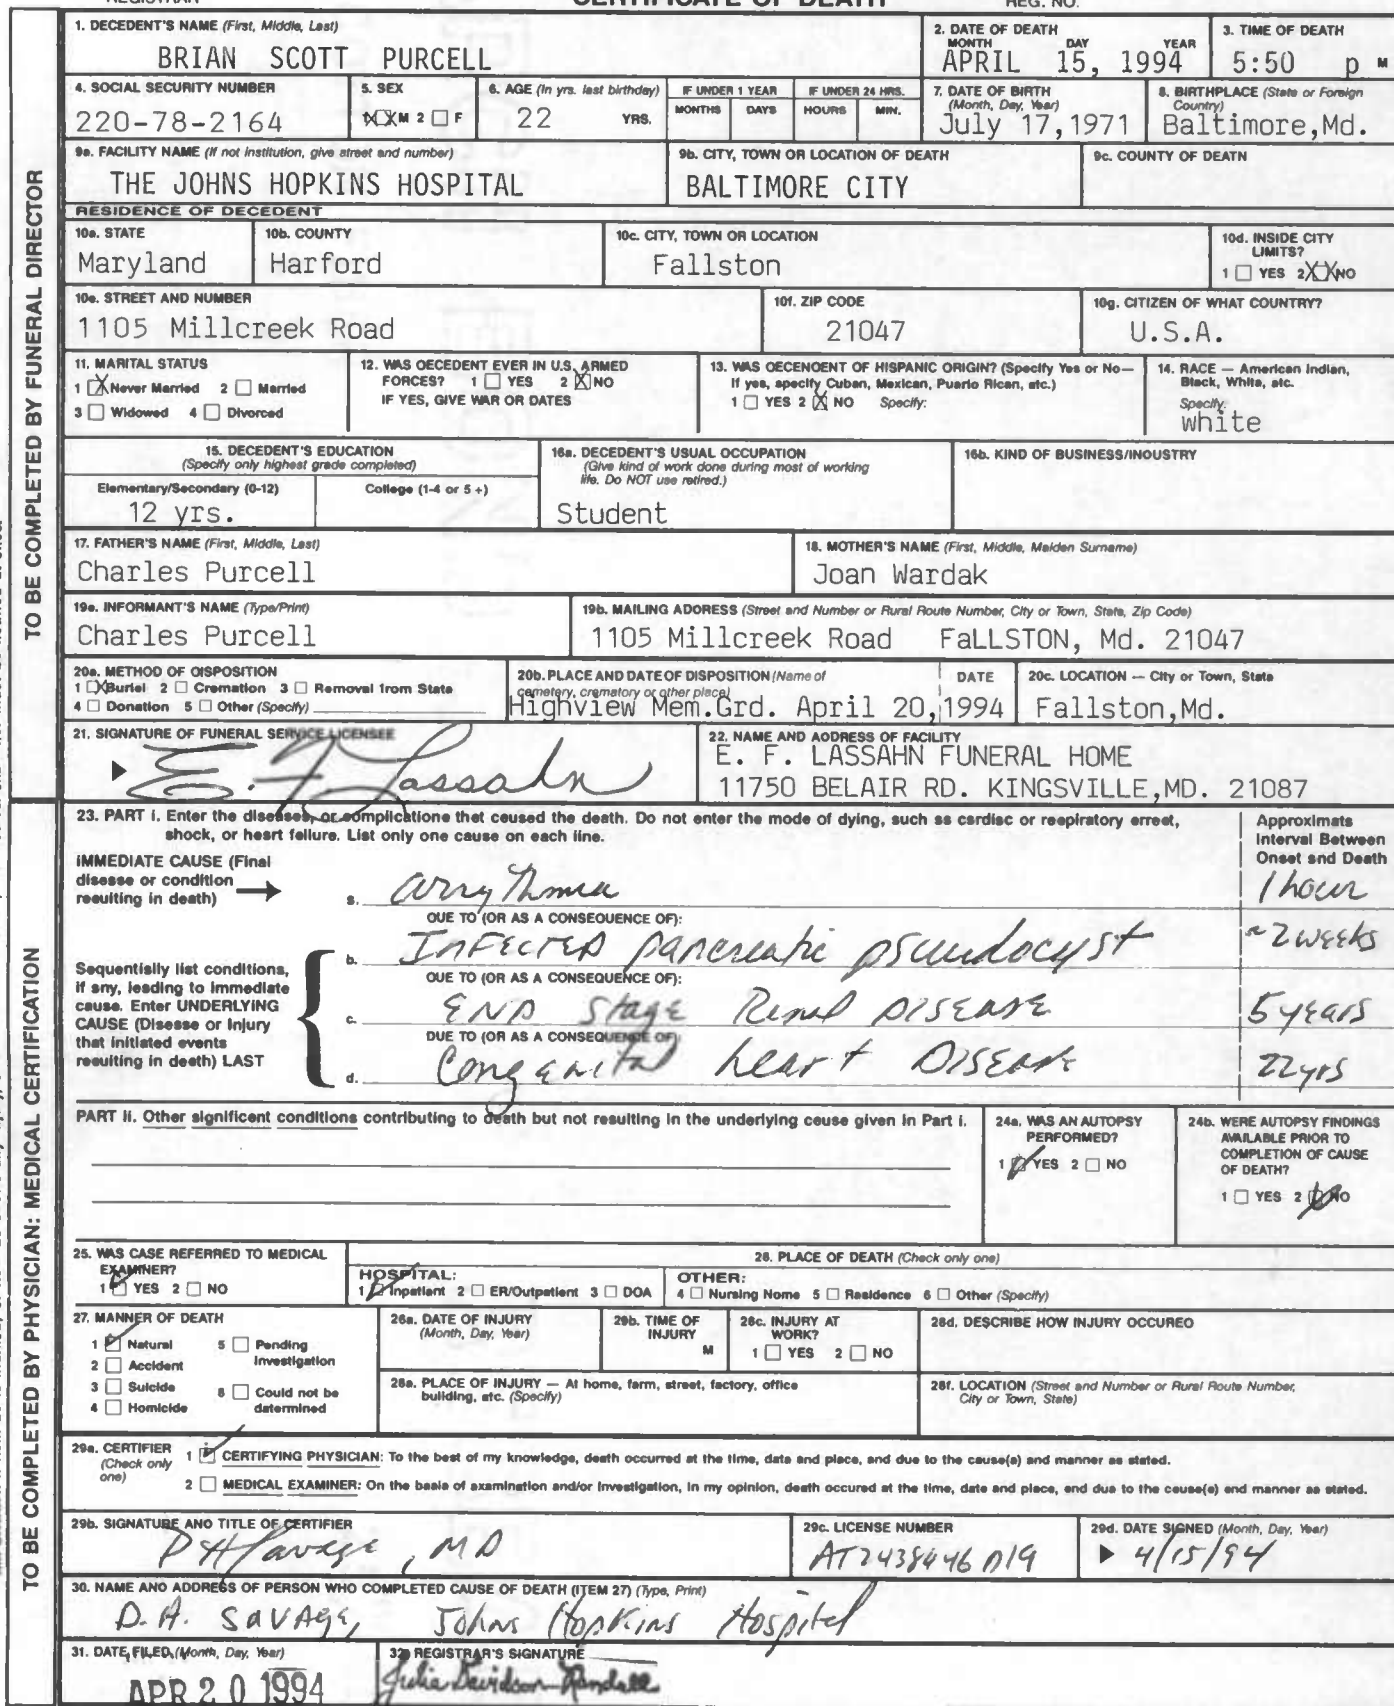 CERTIFICATE OF DEATH
REG. NO.
1. DECEDENT'S NAME (First, Middle, Last)
BRIAN SCOTT PURCELL
2. DATE OF DEATH
MONTH DAY YEAR
APRIL 15, 1994
3. TIME OF DEATH
5:50 p M
4. SOCIAL SECURITY NUMBER
220-78-2164
5. SEX
M 2 F
6. AGE (In yrs. last birthday)
22 YRS.
IF UNDER 1 YEAR
MONTHS DAYS
IF UNDER 24 HRS.
HOURS MIN.
7. DATE OF BIRTH
(Month, Day, Year)
July 17,1971
8. BIRTHPLACE (State or Foreign
Country)
Baltimore,Md.
9a. FACILITY NAME (If not institution, give street and number)
THE JOHNS HOPKINS HOSPITAL
9b. CITY, TOWN OR LOCATION OF DEATH
BALTIMORE CITY
9c. COUNTY OF DEATH
RESIDENCE OF DECEDENT
10a. STATE
Maryland
10b. COUNTY
Harford
10c. CITY, TOWN OR LOCATION
Fallston
10d. INSIDE CITY
LIMITS?
1 YES 2 XX NO
10e. STREET AND NUMBER
1105 Millcreek Road
10f. ZIP CODE
21047
10g. CITIZEN OF WHAT COUNTRY?
U.S.A.
11. MARITAL STATUS
1 X Never Married 2 Married
3 Widowed 4 Divorced
12. WAS DECEDENT EVER IN U.S. ARMED
FORCES? 1 YES 2 X NO
IF YES, GIVE WAR OR DATES
13. WAS DECENDENT OF HISPANIC ORIGIN? (Specify Yes or No—
If yes, specify Cuban, Mexican, Puerto Rican, etc.)
1 YES 2 X NO Specify:
14. RACE — American Indian,
Black, White, etc.
Specify:
white
15. DECEDENT'S EDUCATION
(Specify only highest grade completed)
Elementary/Secondary (0-12)
12 yrs.
College (1-4 or 5+)
16a. DECEDENT'S USUAL OCCUPATION
(Give kind of work done during most of working
life. Do NOT use retired.)
Student
16b. KIND OF BUSINESS/INDUSTRY
17. FATHER'S NAME (First, Middle, Last)
Charles Purcell
18. MOTHER'S NAME (First, Middle, Maiden Surname)
Joan Wardak
19a. INFORMANT'S NAME (Type/Print)
Charles Purcell
19b. MAILING ADDRESS (Street and Number or Rural Route Number, City or Town, State, Zip Code)
1105 Millcreek Road FaLLSTON, Md. 21047
20a. METHOD OF DISPOSITION
1 X Burial 2 Cremation 3 Removal from State
4 Donation 5 Other (Specify)
20b. PLACE AND DATE OF DISPOSITION (Name of
cemetery, crematory or other place)
DATE
Highview Mem.Grd. April 20,1994
20c. LOCATION — City or Town, State
Fallston,Md.
21. SIGNATURE OF FUNERAL SERVICE LICENSEE
E. F. Lassahn
22. NAME AND ADDRESS OF FACILITY
E. F. LASSAHN FUNERAL HOME
11750 BELAIR RD. KINGSVILLE,MD. 21087
TO BE COMPLETED BY FUNERAL DIRECTOR
23. PART I. Enter the diseases, or complications that caused the death. Do not enter the mode of dying, such as cardiac or respiratory arrest,
shock, or heart failure. List only one cause on each line.
Approximate
Interval Between
Onset and Death
IMMEDIATE CAUSE (Final
disease or condition
resulting in death)
a. arrythmia
1 hour
DUE TO (OR AS A CONSEQUENCE OF):
b. INFECTED pancreatic pseudocyst
~2 weeks
DUE TO (OR AS A CONSEQUENCE OF):
c. END Stage Renal DISEASE
5 years
DUE TO (OR AS A CONSEQUENCE OF):
d. Congenital heart DISEASE
22 yrs
Sequentially list conditions,
if any, leading to immediate
cause. Enter UNDERLYING
CAUSE (Disease or Injury
that initiated events
resulting in death) LAST
PART II. Other significant conditions contributing to death but not resulting in the underlying cause given in Part I.
24a. WAS AN AUTOPSY
PERFORMED?
1 YES 2 NO
24b. WERE AUTOPSY FINDINGS
AVAILABLE PRIOR TO
COMPLETION OF CAUSE
OF DEATH?
1 YES 2 NO
25. WAS CASE REFERRED TO MEDICAL
EXAMINER?
1 YES 2 NO
26. PLACE OF DEATH (Check only one)
HOSPITAL:
1 Inpatient 2 ER/Outpatient 3 DOA
OTHER:
4 Nursing Home 5 Residence 6 Other (Specify)
27. MANNER OF DEATH
1 Natural 5 Pending
Investigation
2 Accident
3 Suicide 6 Could not be
determined
4 Homicide
28a. DATE OF INJURY
(Month, Day, Year)
28b. TIME OF
INJURY
M
28c. INJURY AT
WORK?
1 YES 2 NO
28d. DESCRIBE HOW INJURY OCCURED
28e. PLACE OF INJURY — At home, farm, street, factory, office
building, etc. (Specify)
28f. LOCATION (Street and Number or Rural Route Number,
City or Town, State)
29a. CERTIFIER
(Check only
one)
1 CERTIFYING PHYSICIAN: To the best of my knowledge, death occurred at the time, date and place, and due to the cause(s) and manner as stated.
2 MEDICAL EXAMINER: On the basis of examination and/or investigation, in my opinion, death occured at the time, date and place, and due to the cause(s) and manner as stated.
29b. SIGNATURE AND TITLE OF CERTIFIER
DASavage, MD
29c. LICENSE NUMBER
AT2438446 D19
29d. DATE SIGNED (Month, Day, Year)
4/15/94
30. NAME AND ADDRESS OF PERSON WHO COMPLETED CAUSE OF DEATH (ITEM 27) (Type, Print)
D.A. SAVAGE, Johns Hopkins Hospital
31. DATE FILED (Month, Day, Year)
APR 20 1994
32. REGISTRAR'S SIGNATURE
Julia Davidson-Randall
TO BE COMPLETED BY PHYSICIAN: MEDICAL CERTIFICATION